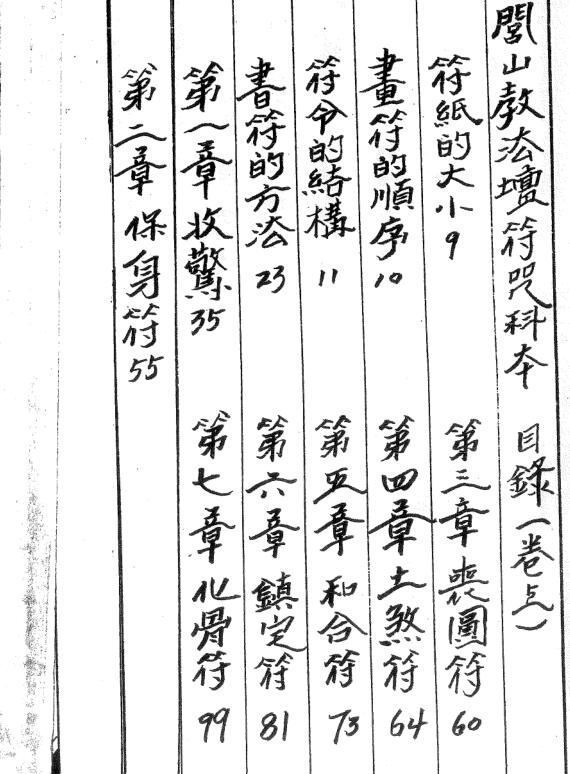 閭山教法壇符咒科本 目錄一卷
符紙的大小 9
畫符的順序 10
符令的結構 11
書符的方法 23
第一章 收驚 35
第二章 保身符 55
第三章 喪圖符 60
第四章 土煞符 64
第五章 和合符 73
第六章 鎮定符 81
第七章 化骨符 99